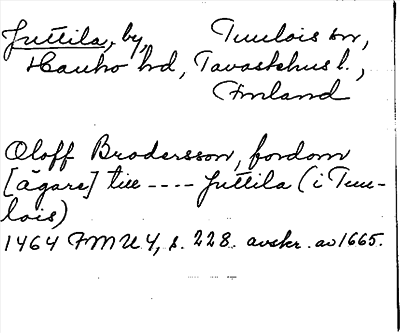 Juttila, by, Tuulois sn,
Hauho hd, Tavastehus l.,
Finland
Oloff Brodersson, fordom
[ägare] till ---- Juttila (i Tuu-
lois)
1464 FMU 4, s. 228. avskr. av 1665.